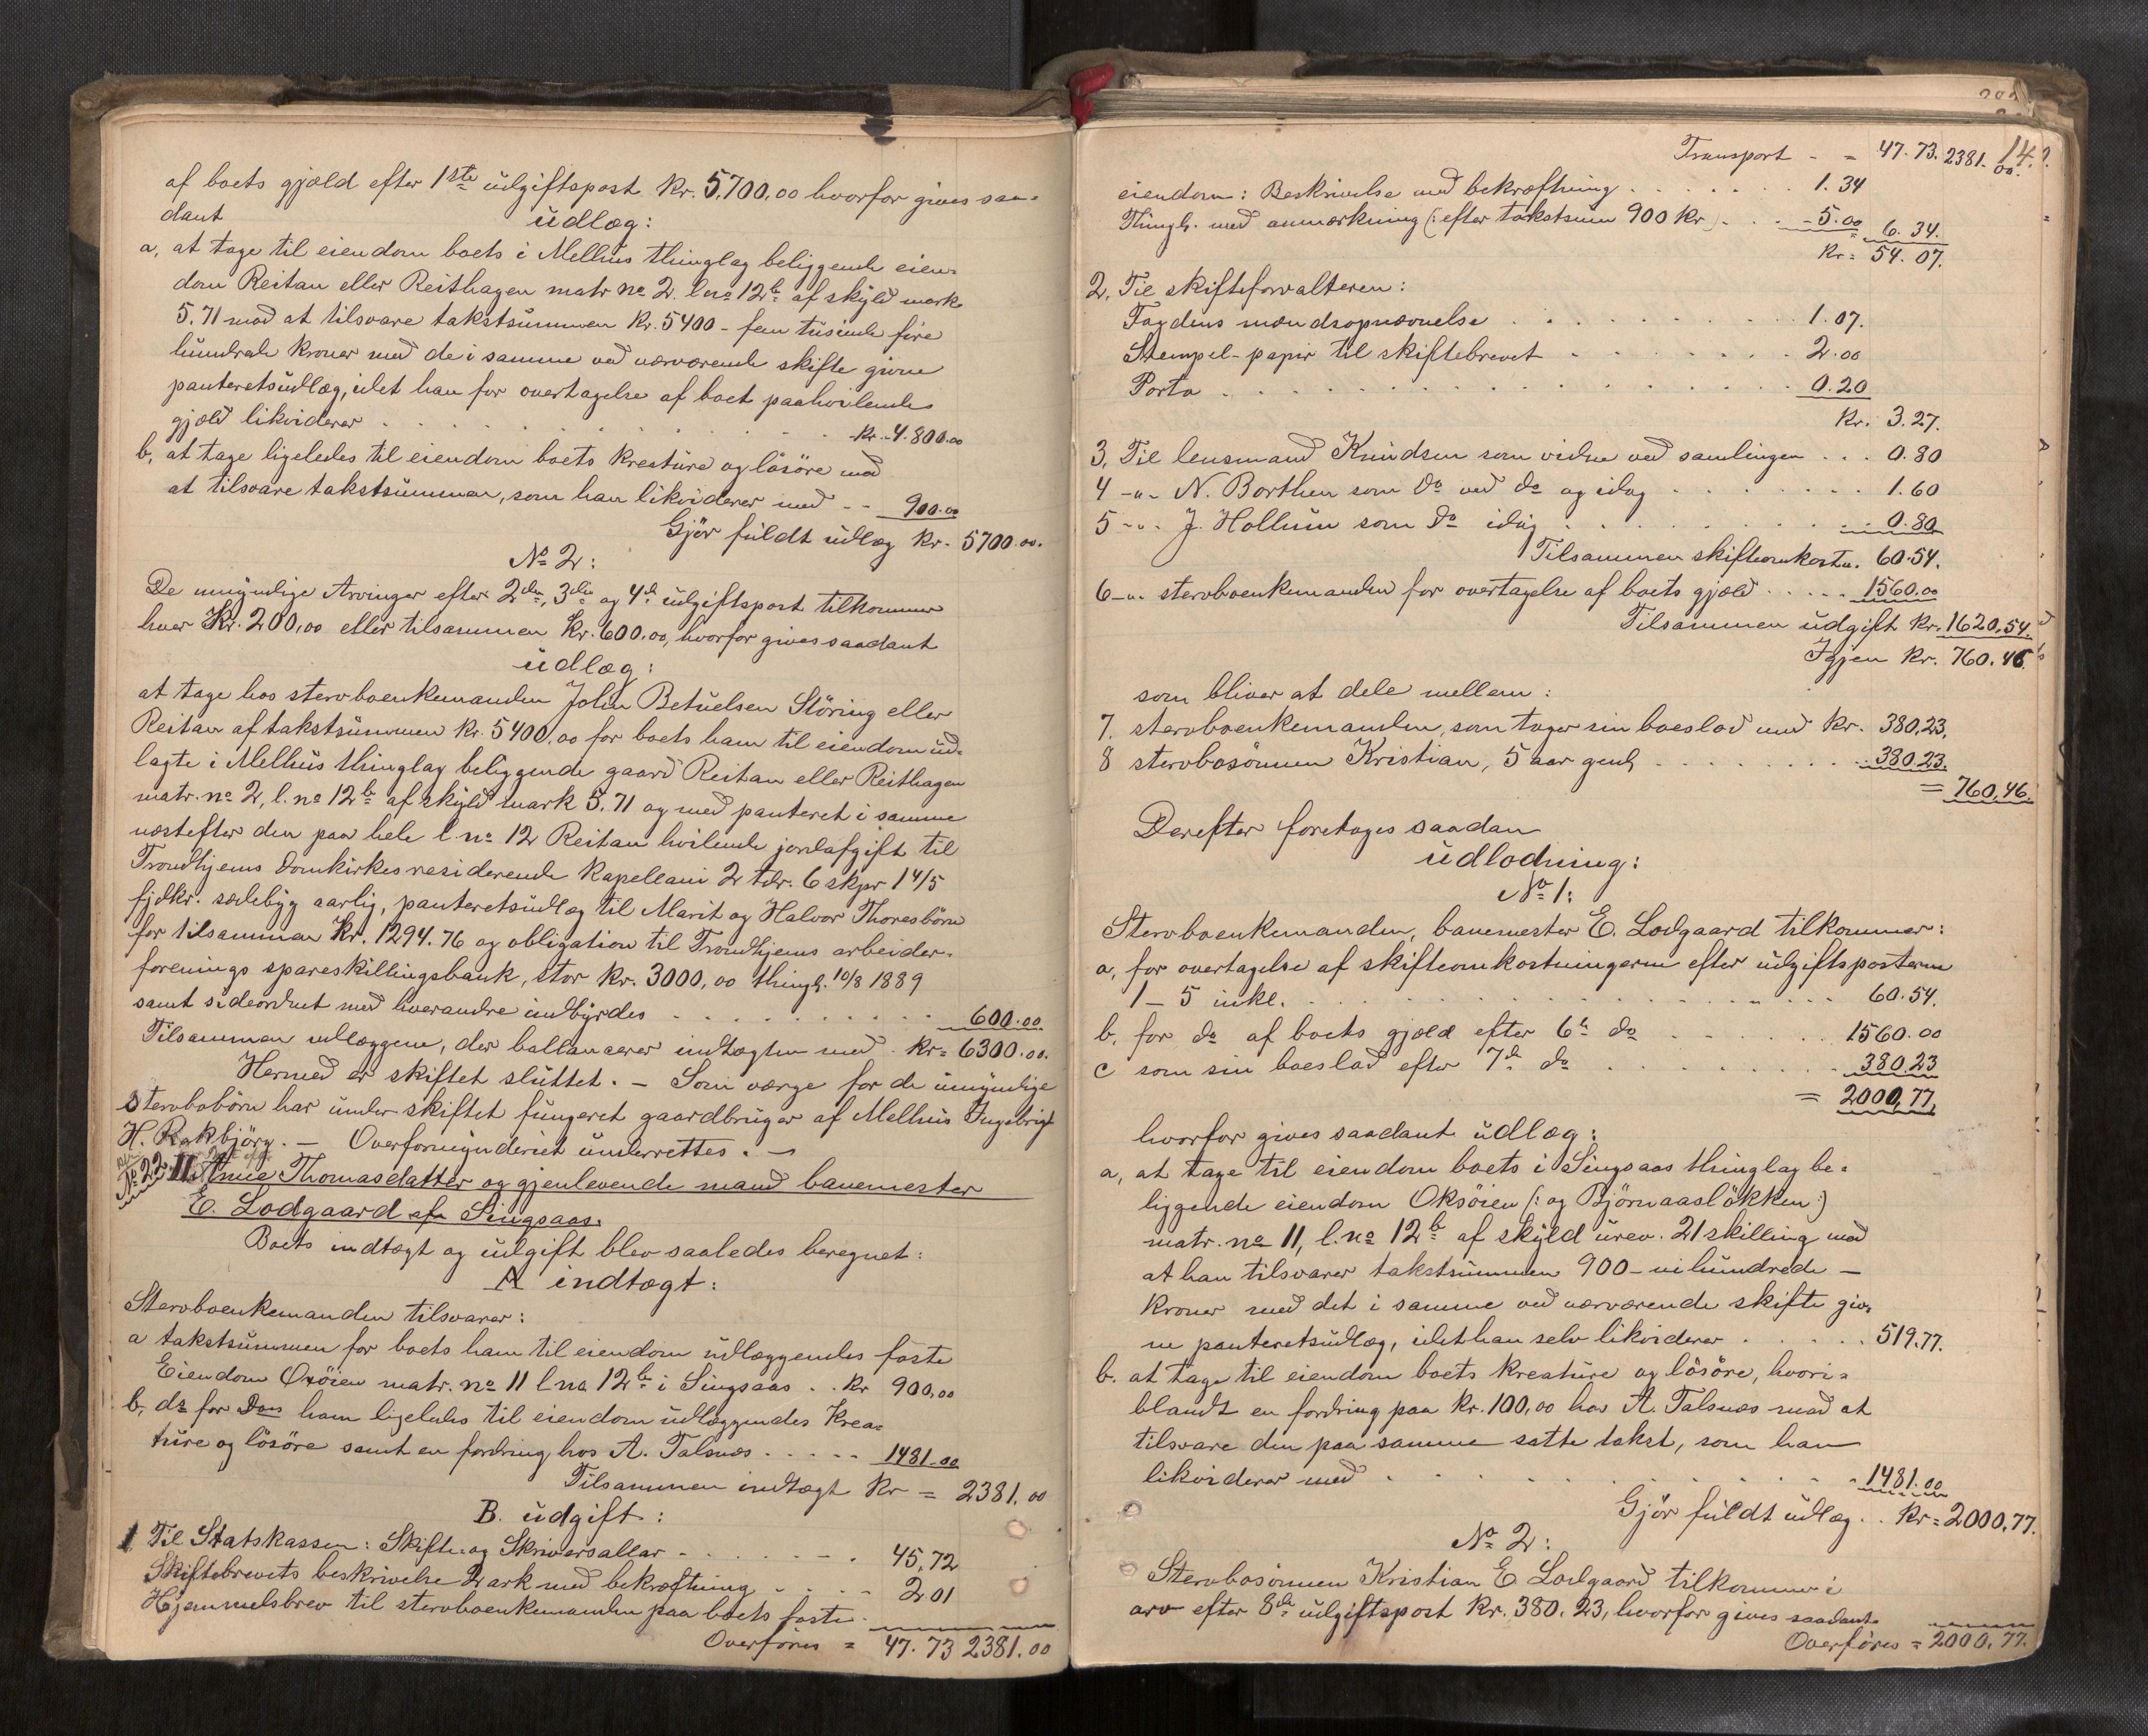 af boets gjæld efter 1ste udgiftspost Kr. 5700,00 hvorfor gives saa-
dant
udlæg:
a, at tage til eiendom boets i Melhus thinglag beliggende eien-
dom Reitan eller Reithagen matr no 2. l no 12b af skyld mark
5.71 mod at tilsvare takstsummen Kr. 5400 - fem tusinde fire
hundrede kroner med de i samme ved nærværende skifte givne
panteretsudlæg, idet han for overtagelse af boet paahvilende
gjæld likviderer . . . Kr. 4.800.00
b, at tage ligeledes til eiendom boets kreature og løsøre mod
at tilsvare takstsummen, som han likviderer med - - 900.00
Gjør fuldt udlæg Kr. 5700.00.
No 2:
De umyndige Arvinger efter 2den, 3die og 4de udgiftspost tilkommer
hver Kr. 200,00 eller tilsammen Kr. 600.00, hvorfor gives saadant
udlæg:
at tage hos stervboenkemanden John Betuelsen Störing eller
Reitan af takstsummen Kr. 5400,00 for boets ham til eiendom ud-
lagte i Melhus thinglag beliggende gaard Reitan eller Reithagen
matr. no 2, l. no 12b af skyld mark 5.71 og med panteret i samme
næstefter den paa hele l. no 12 Reitan hvilende jordafgift til
Trondhjems domkirkes residerende Kapellani 2 tdr. 6 skpr 1 4/5
fjdkr. sædebyg aarlig, panteretsudlæg til Marit og Halvor Thoresbörn
for tilsammen Kr. 1294.76 og obligation til Trondhjems arbeider-
forenings spareskillingsbank, stor Kr. 3000,00 thingl. 10/8 1889
samt sideordnet med hverandre indbyrdes . . . 600.00
Tilsammen udlæggene, der ballancerer indtægten med Kr = 6300.00.
Hermed er skiftet sluttet. - Som værge for de umyndige
stervbobörn har under skiftet fungeret gaardbruger af Melhus Ingebrigt
H. Rakbjörg. - Overformynderiet underrettes. -
No 22. II. Anne Thomasdatter og gjenlevende mand banemester
E. Lodgaard af Singsaas.
Boets indtægt og udgift blev saaledes beregnet:
A indtægt:
Stervboenkemanden tilsvarer:
a takstsummen for boets ham til eiendom udlæggendes faste
Eiendom Oxöien matr. no 11 l no 12b i Singsaas . . Kr 900,00
b, do for Do ham ligeledes til eiendom udlæggendes Krea-
ture og lösöre samt en fordring hos A. Talsnæs . . . 1481.00
Tilsammen indtægt Kr = 2381.00
B. udgift:
1 Til Statskassen: Skifte- og Skriversallær . . . 45,72
Skiftebrevets beskrivelse 2 ark med bekræftning . . . 2.01
Hjemmelsbrev til stervboenkemanden paa boets faste
Overföres = 47.73 2381.00
14
Transport - = 47.73. 2381.00.
eiendom: Beskrivelse med bekræftning . . . 1.34
Thingl. med anmærkning (: efter takstsum 900 Kr) . . . 5.00 6.34.
Kr = 54.07.
2, Til skifteforvalteren:
Fogdens mændsopnævnelse . . . 1.07.
Stempel-papir til skiftebrevet . . . 2.00
Porto . . . 0.20
Kr. 3.27.
3, Til lensmand Knudsen som vidne ved samlingen . . . 0.80
4 -"- N. Borthen som do ved do og idag . . . 1.60
5 -"- J. Hollum som do idag . . . 0.80
Tilsammen skifteomkostn. 60.54.
6 -"- stervboenkemanden for overtagelse af boets gjæld . . . 1560.00
Tilsammen udgift Kr. 1620,54.
Igjen Kr. 760.46
som bliver at dele mellem:
7. stervboenkemanden, som tager sin boeslod med Kr. 380,23,
8 stervbosönnen Kristian, 5 aar gml, . . . 380.23.
= 760,46.
Derefter foretages saadan
udlodning:
No 1:
Stervboenkemanden, banemester E. Lodgaard tilkommer:
a, for overtagelse af skifteomkostningerne efter udgiftsposterne
1 - 5 inkl. . . . 60.54.
b, for do af boets gjæld efter 6te do . . . 1560.00
c som sin boeslod efter 7de do . . . 380.23
= 2000,77,
hvorfor gives saadant udlæg:
a, at tage til eiendom boets i Singsaas thinglag be-
liggende eiendom Oksöien (: og Björnaaslökken :)
matr. no 11, l. no 12b af skyld urev. 21 skilling mod
at han tilsvarer takstsummen 900 - nihundrede -
Kroner med det i samme ved nærværende skifte giv-
ne panteretsudlæg, idet han selv likviderer . . . 519.77.
b. at tage til eiendom boets kreature og lösöre, hvori-
blandt en fordring paa Kr. 100,00 hos A. Talsnæs mod at
tilsvare den paa samme satte takst, som han
likviderer med . . . 1481.00
Gjör fuldt udlæg . . Kr = 2000,77.
No 2:
Stervbosönnen Kristian E. Lodgaard tilkommer i
arv efter 8de udgiftspost Kr. 380.23, hvorfor gives saadant
Overföres = 2000.77.